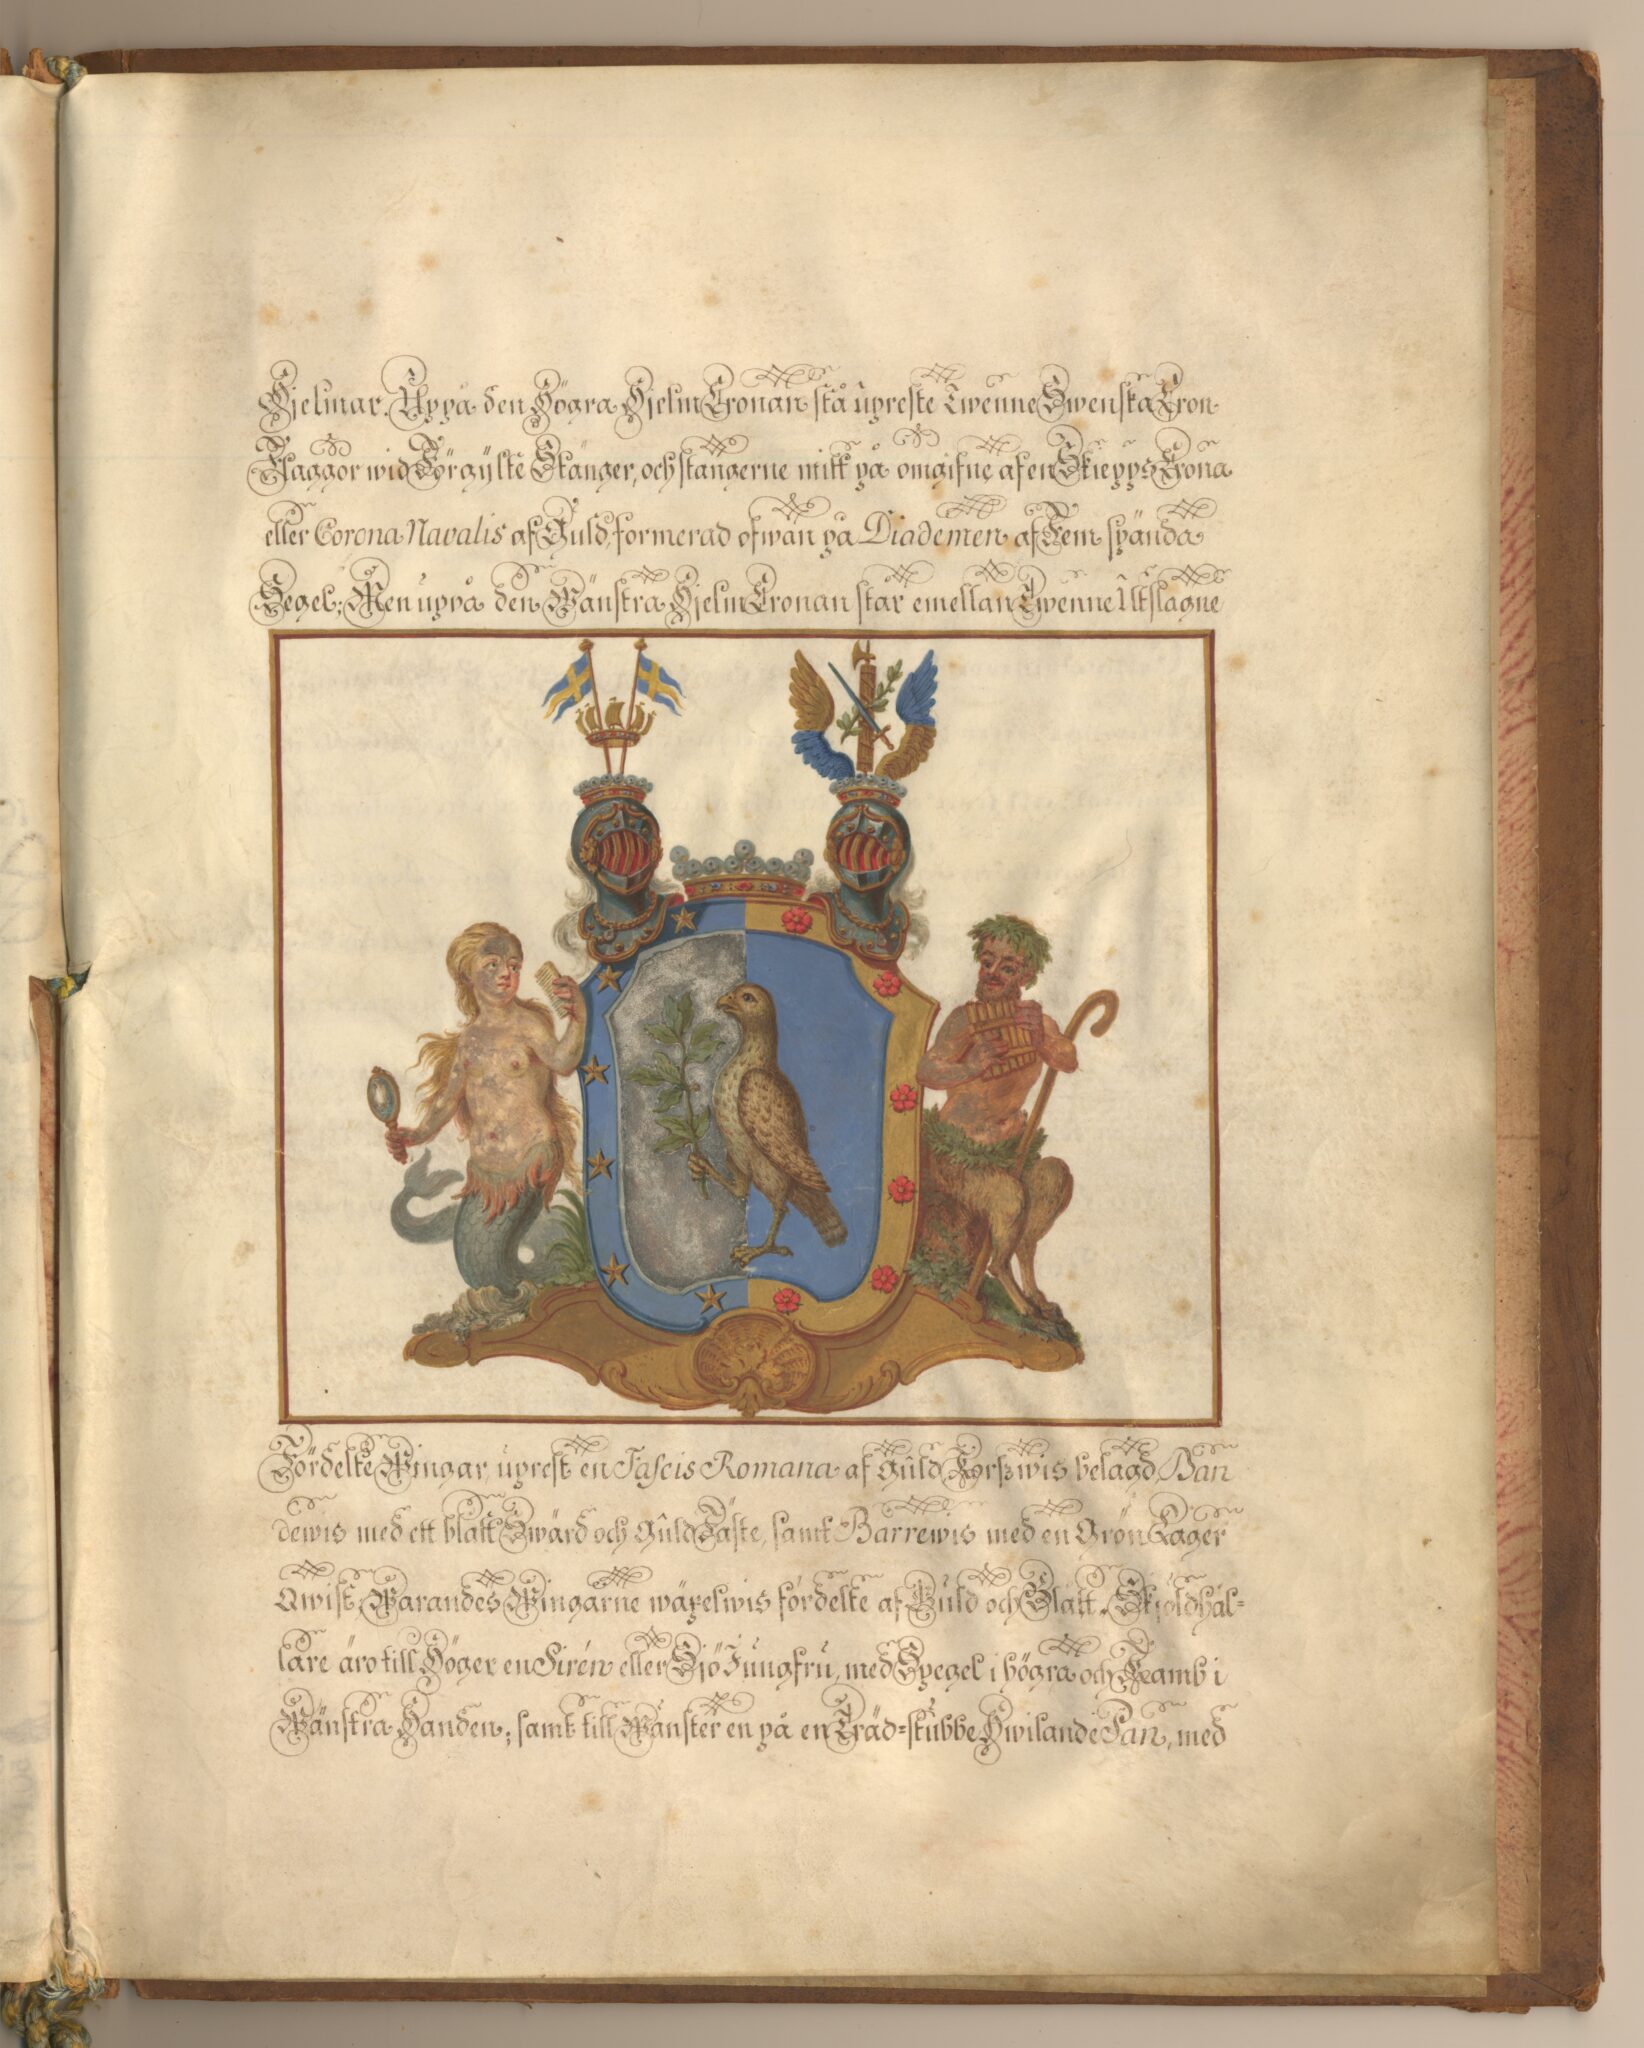 Hjelmar. Uppå den Högra Hjelm Cronan stå upreste Twenne Swenska Cron
Flaggor wid Förgylte Stänger, och stängerne mitt på omgifne af en Skiepps Crona
eller Corona Navalis af Guld, formerad ofwan på Diademen af Fem spända
Segel; Men uppå den Wänstra Hjelm Cronan står emellan Twenne Utslagne
Fördelte Wingar, uprest en Fascis Romana af Guld Korswis belagd, Ban
dewis med ett blått Swärd och Guld Fäste, samt Barrewis med en Grön Lager
Qwist, Warandes Wingarne wäxelwis fördelte af Guld och Blått. Skjöldhål=
lare äro till Höger en Sirén eller Sjö Jungfru, med Spegel i högra och Kamb i
Wänstra Handen; samt till Wänster en på en Träd=stubbe Hwilande Pan, med